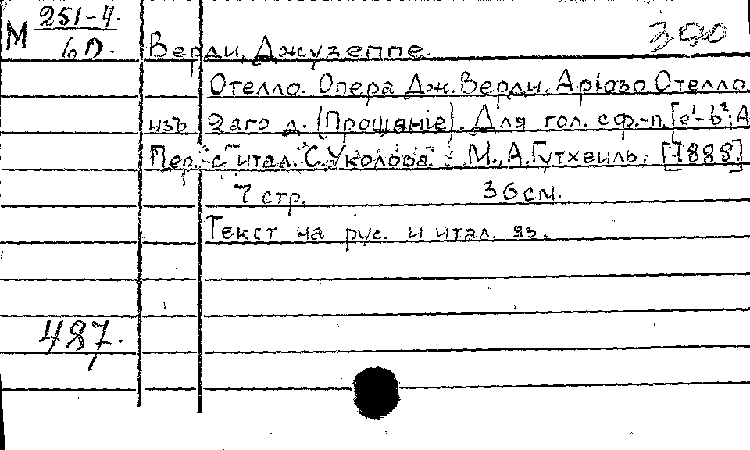 М 251-4.
6D.
390
Верди, Джузеппе.
Отелло. Опера Дж. Верди. Аріозо Отелло
изъ 2аго д. (Прощаніе). Для гол. с ф.-п. [e¹-b²; A
Пер. с итал. С. Уколова. М., А. Гутхейль, [1888]
7 стр. 36 см.
Текст на рус. и итал. яз.
487.